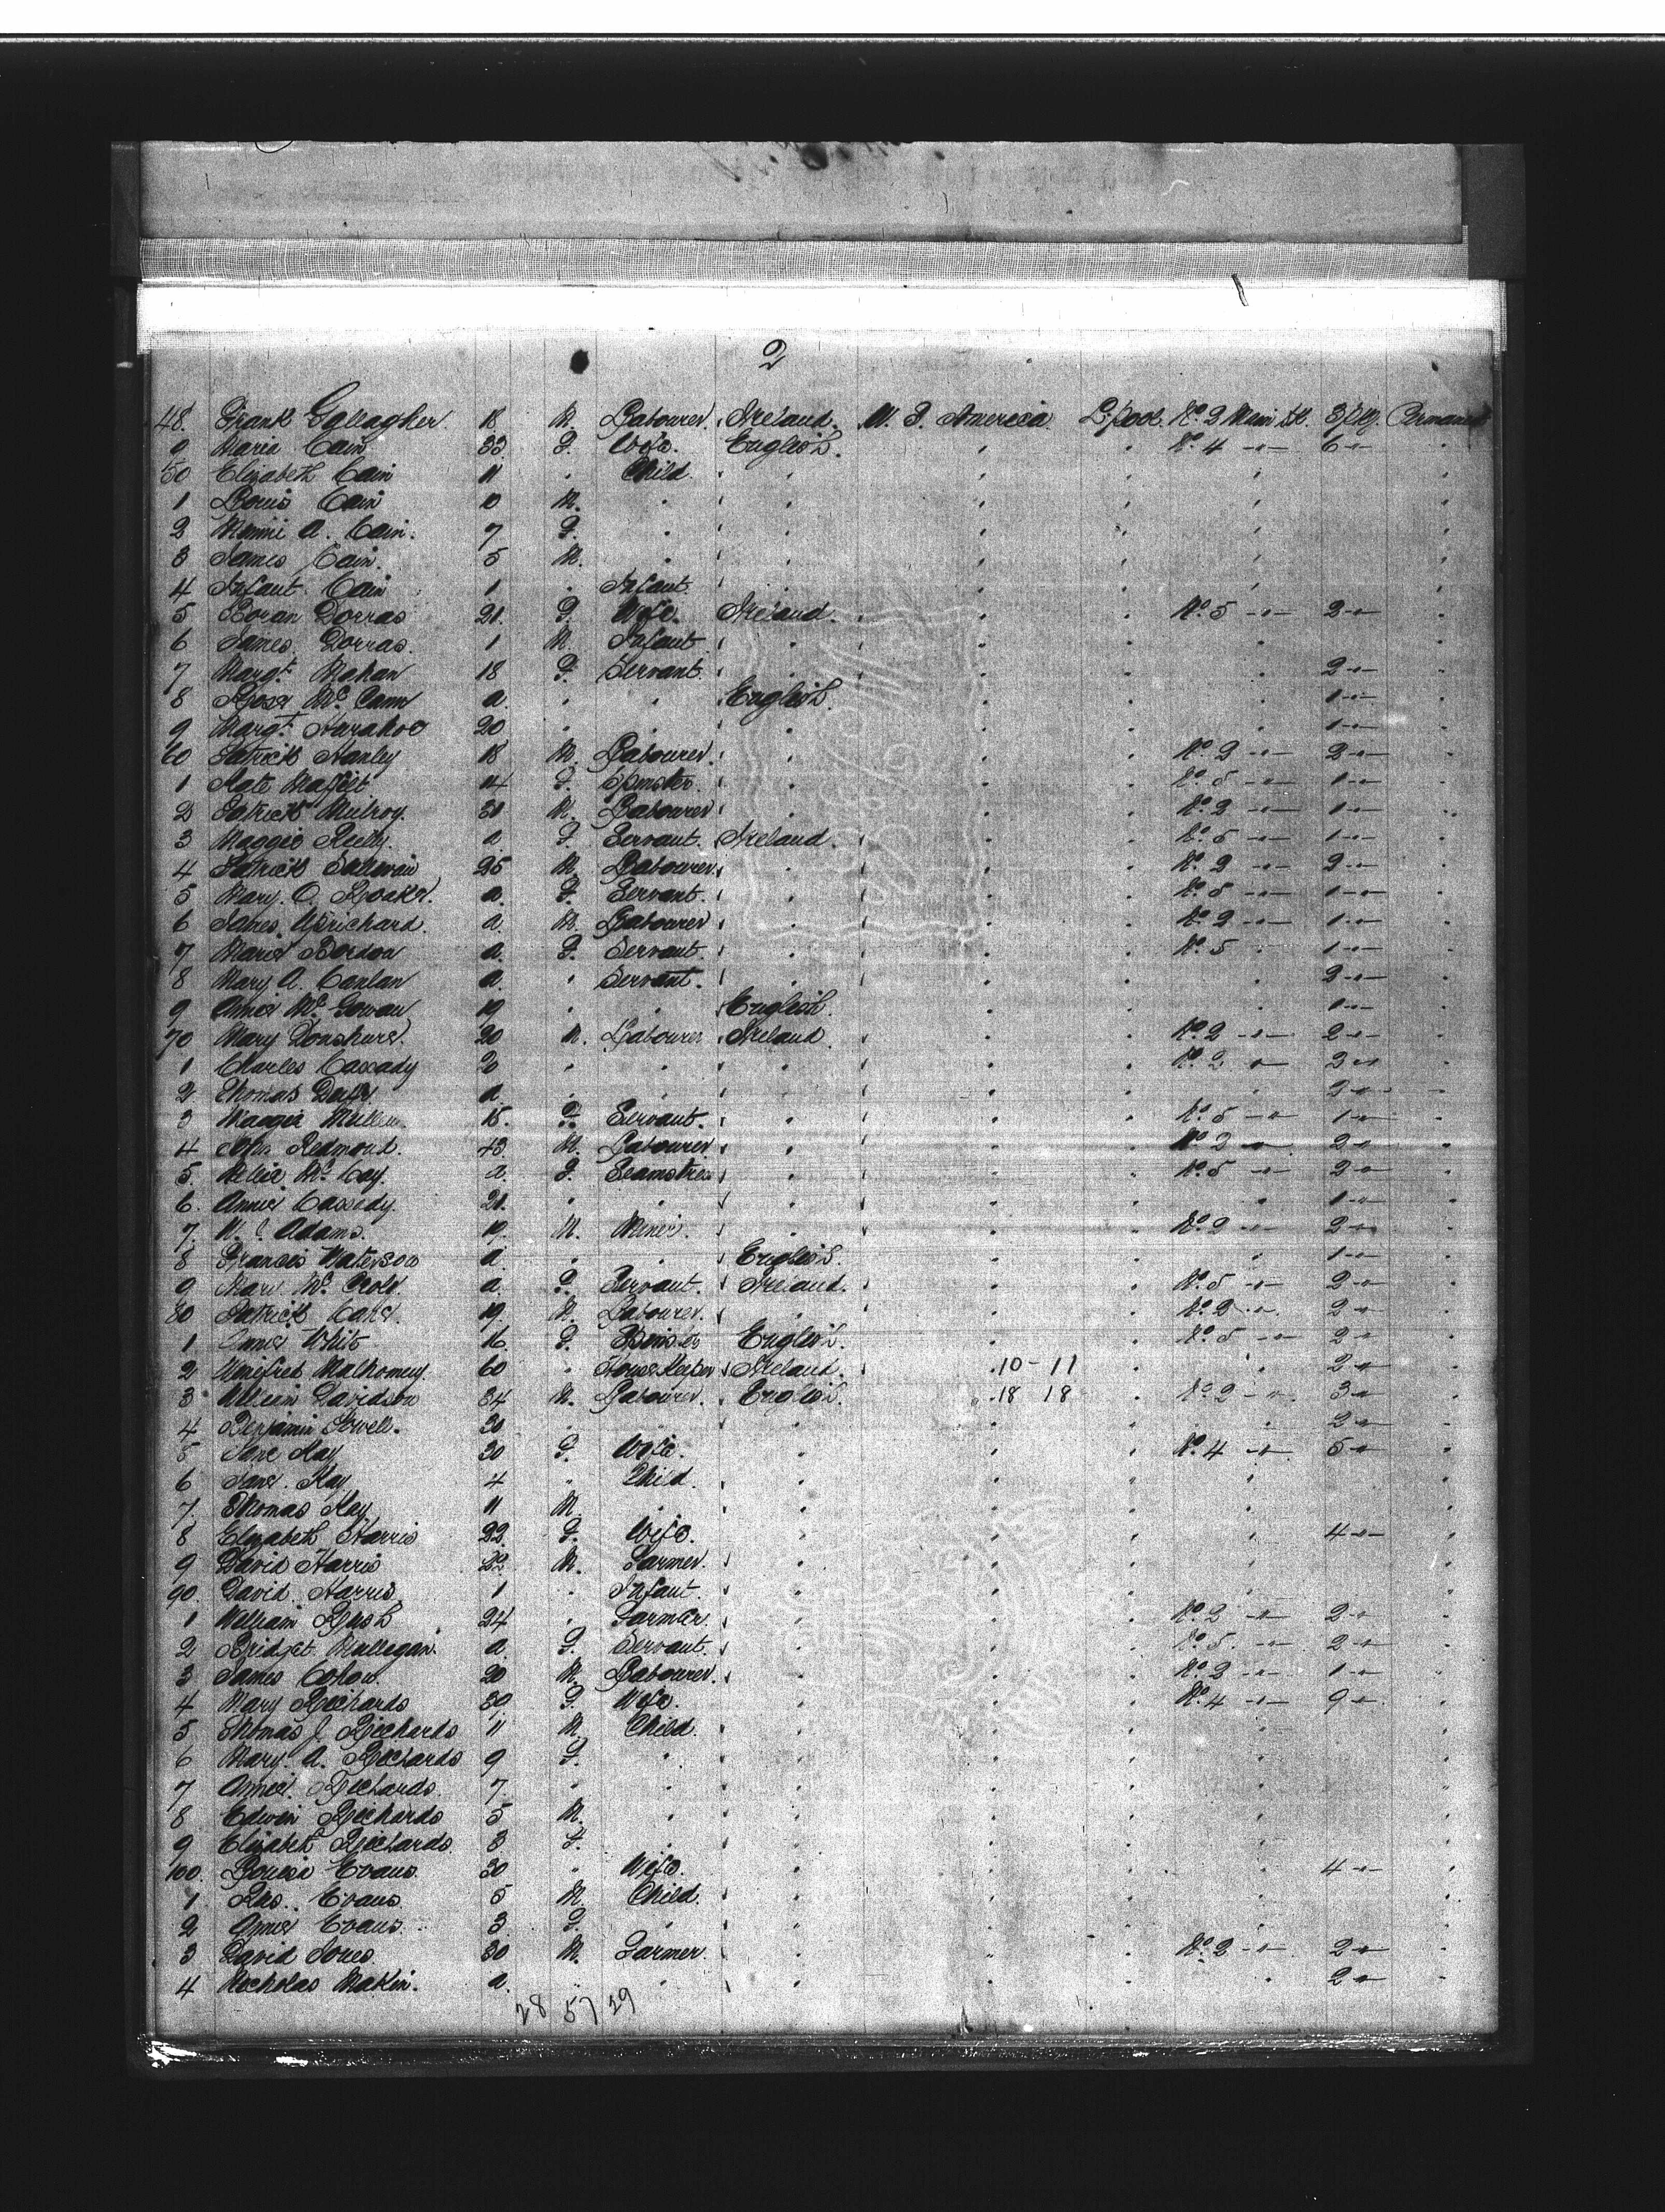 2
48. Frank Gallagher 18 M. Labourer. Ireland. U. S. America. L'pool. No. 2 Main Dk. 3 pkg. Permanent
9 Maria Cain 33 F. Wife. English. " " No. 4 -"- 6 "
50 Elizabeth Cain 11 " Child. " " "
1 Louis Cain 10 M. " " " "
2 Minnie A. Cain. 7 F. " " " "
3 James Cain. 5 M. " " " "
4 Infant Cain 1 " Infant. " " "
5 Doran Dorras 21. F. Wife. Ireland. " " No. 5 -"- 2 -"-
6 James Dorras. 1 M. Infant " " "
7 Margt. Mahan 18 F. Servant. " " " " 2 -"-
8 Rose Mc Cann a. " " English. " " " 1 -"-
9 Margt. 20 " " " " " " 1 -"-
60 Patrick Hanley 18 M. Labourer. " " " No. 2 -"- 2 -"-
1 Kate 14 F. Spinster. " " " No. 5 -"- 1 -"-
2 Patrick Mulroy. 30 M. Labourer " " " No. 2 -"- 1 -"-
3 Maggie Reilly. a. F. Servant. Ireland. " " No. 5 -"- 1 -"-
4 Patrick 25 M. Labourer. " " " No. 2 -"- 2 -"-
5 Mary. O. a. F. Servant. " " " No. 5 -"- 1 -"-
6 James Uprichard. a. M. Labourer " " " No. 2 -"- 1 -"-
7 Maria a. F. Servant. " " " No. 5 " 1 -"-
8 Mary A. Canlan a. " Servant. " " " " 2 -"-
9 Annie Mc Gowan 19 " " English. " " " 1 -"-
70 Mary 20 M. Labourer Ireland. " " No. 2 -"- 2 -"-
1 Charles Cassady 20 " " " " " No. 2 " 2 "
2 Thomas Duffy. a. " " " " " " 2 "
3 Maggie Mullen. 15. F. Servant. " " " No. 5 -"- 1 "
4 John Redmond. 43. M. Labourer " " " No. 2 " 2 "
5. Nellie Mc Cay. a. F. Seamstress " " " No. 5 " 2 "
6. Annie Cassedy. 21. " " " " " " 1 "
7. W. J. Adams. 19. M. Miner. " " " No. 2 " 2 "
8 Francis Waterson a. " " English. " " " 1 "
9 Mary Mc a. F. Servant. Ireland. " " No. 5 -"- 2 "
80 Patrick 19. M. Labourer. " " " No. 2 " 2 "
1 Annie White 16. F. English. " " No. 5 -"- 2 "
2 Winifred 60 " House Keeper Ireland. 10 - 11 " " 2 "
3 William Davidson 34 M. Labourer. English. 18 18 " No. 2 " 3 "
4 Benjamin 30 " " " " " " 2 "
5 Jane Kay 30 F. Wife. " " " No. 4 " 5 "
6 Jane. Kay 4 " Child. " " " "
7. Thomas Kay 11 M. " " " " "
8 Elizabeth Harris 22. F. Wife. " " " " 4 -"-
9 David Harris 22 M. Farmer. " " " "
90. David. Harris. 1 " Infant. " " " "
1 William Rush 24 " Farmer. " " " No. 2 " 2 "
2 Bridget Mullegan. a. F. Servant. " " " No. 5. " 2 "
3 James 20 M. Labourer. " " " No. 2 " 1 "
4 Mary Richards 30 F. Wife. " " " No. 4 -"- 9 "
5 Thomas J. Richards 11 M. Child. " " " "
6 Mary. A. Richards 9 F. " " " " "
7 Annie. Richards. 7. " " " " " "
8 Edwin Richards 5 M. " " " " "
9 Elizabeth Richards. 3 F. " " " " "
100. Louisa Evans. 30 " Wife. " " " " 4 -"-
1 Evans 5 M. Child. " " " "
2 Annie Evans. 3 F. " " " " "
3 David Jones 30 M. Farmer. " " " No. 2 -"- 2 "
4 Nicholas Makin. a. " " " " " " 2 "
28 57 29